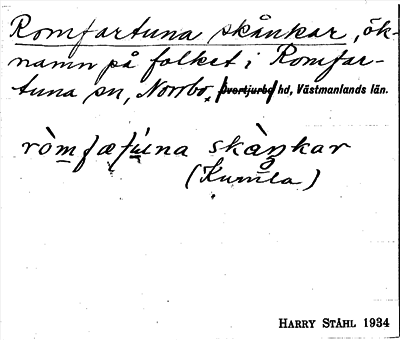 Romfartuna skånkar, ök-
namn på folket i Romfar-
tuna sn, Norrbo hd, Västmanlands län.
ròmfæ skàŋkar
(Kumla)
HARRY STÅHL 1934